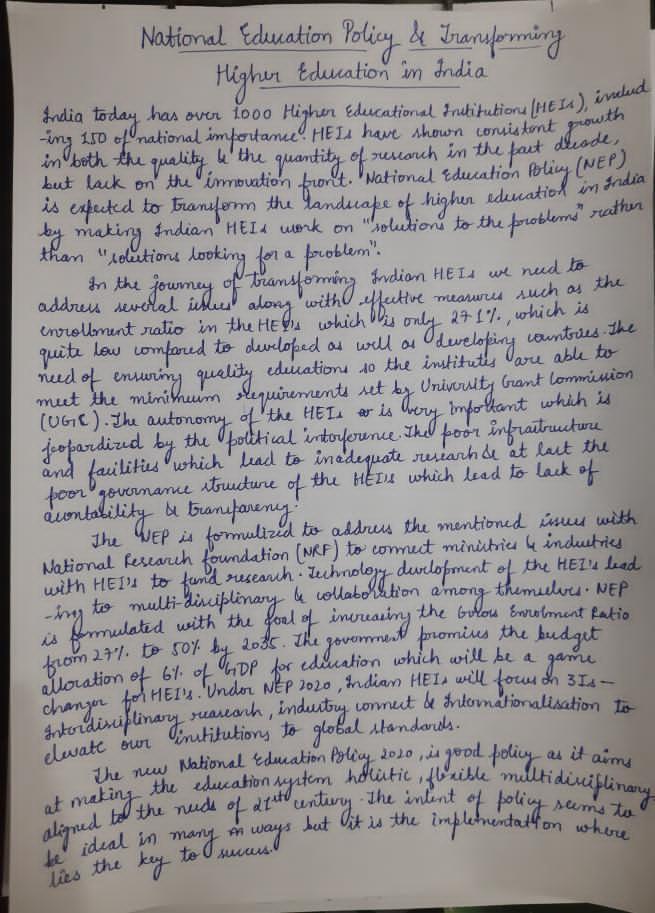 National Education Policy & Transforming
Higher Education in India
India today has over 1000 Higher Educational Institutions (HEIs), includ
-ing 150 of national importance. HEIs have shown consistent growth
in both the quality & the quantity of research in the past decade,
but lack on the innovation front. National Education Policy (NEP)
is expected to transform the landscape of higher education in India
by making Indian HEIs work on "solutions to the problems" rather
than "solutions looking for a problem".
In the journey of transforming Indian HEIs we need to
address several issues along with effective measures such as the
enrollment ratio in the HEI's which is only 27.1%, which is
quite low compared to developed as well as developing countries. The
need of ensuring quality educations so the institutes are able to
meet the minimum requirements set by University Grant Commission
(UGC). The autonomy of the HEIs is very important which is
jeopardized by the political interference. The poor infrastructure
and facilities which lead to inadequate research & at last the
poor governance structure of the HEI's which lead to lack of
acontability & transparency.
The NEP is formulized to address the mentioned issues with
National Research foundation (NRF) to connect ministries & industries
with HEI's to fund research. Technology development of the HEI's lead
-ing to multi-disciplinary & collaboration among themselves. NEP
is formulated with the goal of increasing the Gross Enrolment Ratio
from 27% to 50% by 2035. The government promises the budget
allocation of 6% of GDP for education which will be a game
changer for HEI's. Under NEP 2020, Indian HEIs will focus on 3Is –
Interdisciplinary reasearch, industry connect & Internationalisation to
elevate our institutions to global standards.
The new National Education Policy 2020, is good policy as it aims
at making the education system holistic, flexible multidisciplinary,
aligned to the needs of 21st century. The intent of policy seems to
be ideal in many ways but it is the implementation where
lies the key to success.